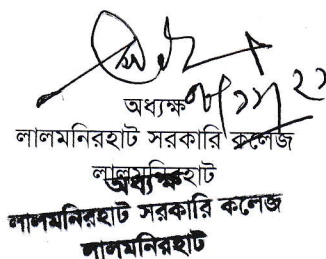 অধ্যক্ষ
লালমনিরহাট সরকারি কলেজ
লালমনিরহাট
অধ্যক্ষ
লালমনিরহাট সরকারি কলেজ
লালমনিরহাট